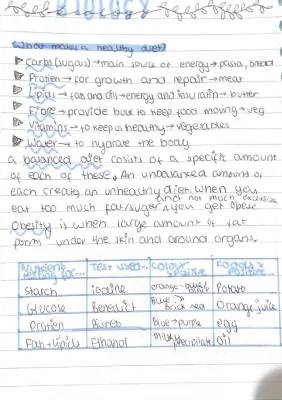 BIOLOGY
What makes a healthy diet?
carbs (sugars) → main source of energy → pasta, bread
Protien → for growth and repair → meat
Lipids → fats and oils → energy and insulation → butter
Fibre → provide bulk to keep food moving → veg
Vitamins → to keep us healthy → vegetables
Water → to hydrate the body
a balanced diet cosists of a specific amount
of each of these. An unbalanced amount of
each creates an unhealthy diet. when you
and not much excersise
eat too much fat/sugar you get obese
Obesity is when large amount of fat
form under the skin and around organs.
Nutrient testing for... Test used... Colour positive Food +
Starch iodine orange → black Potato
Glucose Benedict Blue → Brick red Orange juice
Protien Biuret Blue → purple egg
Fat + Lipids Ethanol Milky precipitate oil